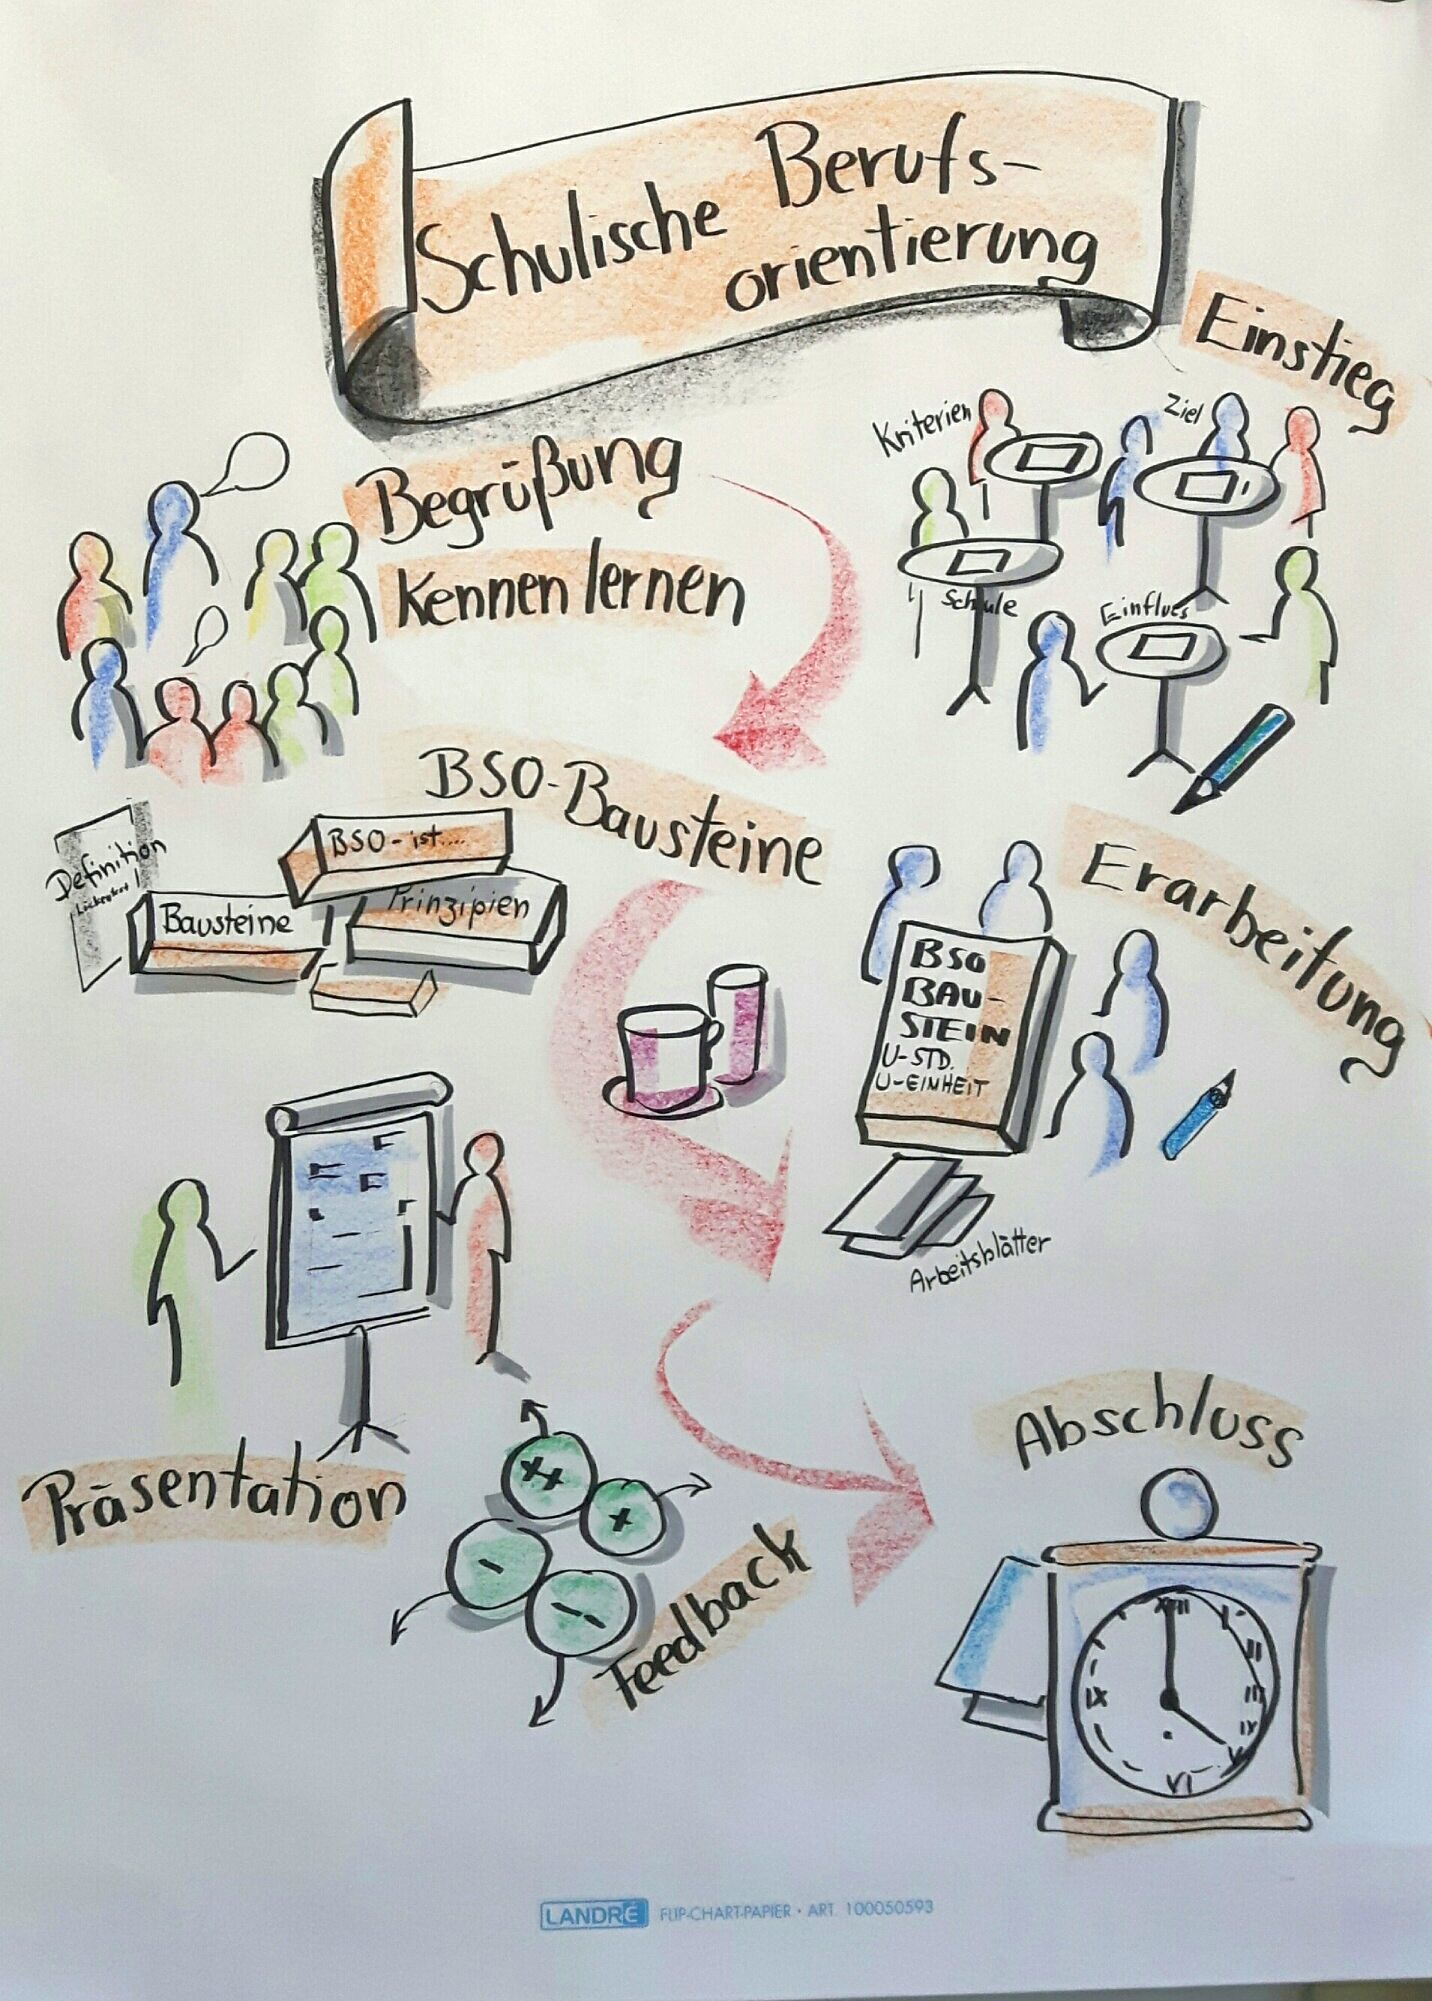 Schulische Berufs-
orientierung
Begrüßung
Kennenlernen
Einstieg
Kriterien
Ziel
Schule
Einfluss
BSO-Bausteine
Definition
BSO-ist....
Bausteine
Prinzipien
Erarbeitung
BSO
BAU-
STEIN
U-STD.
U-EINHEIT
Arbeitsblätter
Präsentation
++
+
-
--
Feedback
Abschluss
XII
I
II
III
IV
V
VI
IX
LANDRÉ FLIP-CHART-PAPIER • ART. 100050593